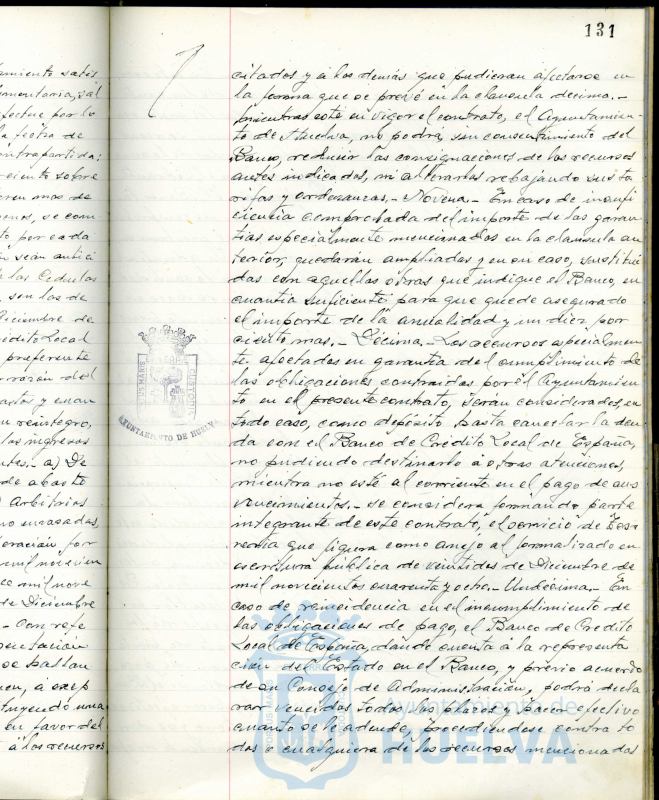 131
citados y a los demás que pudieran afectarse en
la forma que se prevé en la clausula decima.-
mientras esté en vigor el contrato, el Ayuntamien-
to de Huelva, no podrá, sin consentimiento del
Banco, reducir las consignaciones de los recursos
antes indicados, ni alterarlos rebajando sus ta
rifas y ordenanzas.- Novena.- En caso de insufi
ciencia comprobada del importe de las garan
tias especialmente mencionadas en la clausula an
terior, quedarán ampliadas y en su caso, sustitui
das con aquellas otras que indique el Banco, en
cuantia suficiente para que quede asegurado
el importe de la anualidad y un diez por
ciento mas.- Décima.- Los recursos especialmen
te afectados en garantia del cumplimiento de
las obligaciones contraidas por el Ayuntamien
to en el presente contrato, serán considerados, en
todo caso, como depósito hasta cancelar la deu
da con el Banco de Crédito Local de España,
no pudiendo destinarlo a otras atenciones,
mientra no esté al corriente en el pago de sus
vencimientos.- se considera formando parte
integrante de este contrato, el servicio de Teso
reria que figura como anejo al formalizado en
escritura pública de veintidos de Diciembre de
mil novecientos cuarenta y ocho.- Undécima.- En
caso de remeidencia en el incumplimiento de
las obligaciones de pago, el Banco de Credito
Local de España, dando cuenta a la representa
ción del Estado en el Banco, y previo acuerdo
de su Consejo de Administración, podrá decla
rar vencidos todos los plazos y hacer efectivo
cuanto se le adeude, procediendose contra to
dos o cualquiera de los recursos mencionados
amiento satis
mentaria, sal
fectue por lo
la fecha de
ontrapartida:
ciento sobre
to por cada
las Cedulas
son las de
Diciembre de
redito Local
preferente
razón del
reintegro,
los ingresos
ntes.- a) De
de abasto
Arbitrios
no encasadas,
eración por
mil novecien
mil nove
de Diciembre
se hallan
tuyendo una
en favor del
a los recursos
AYUNTAMIENTO DE HUELVA
Ayuntamiento de
HUELVA